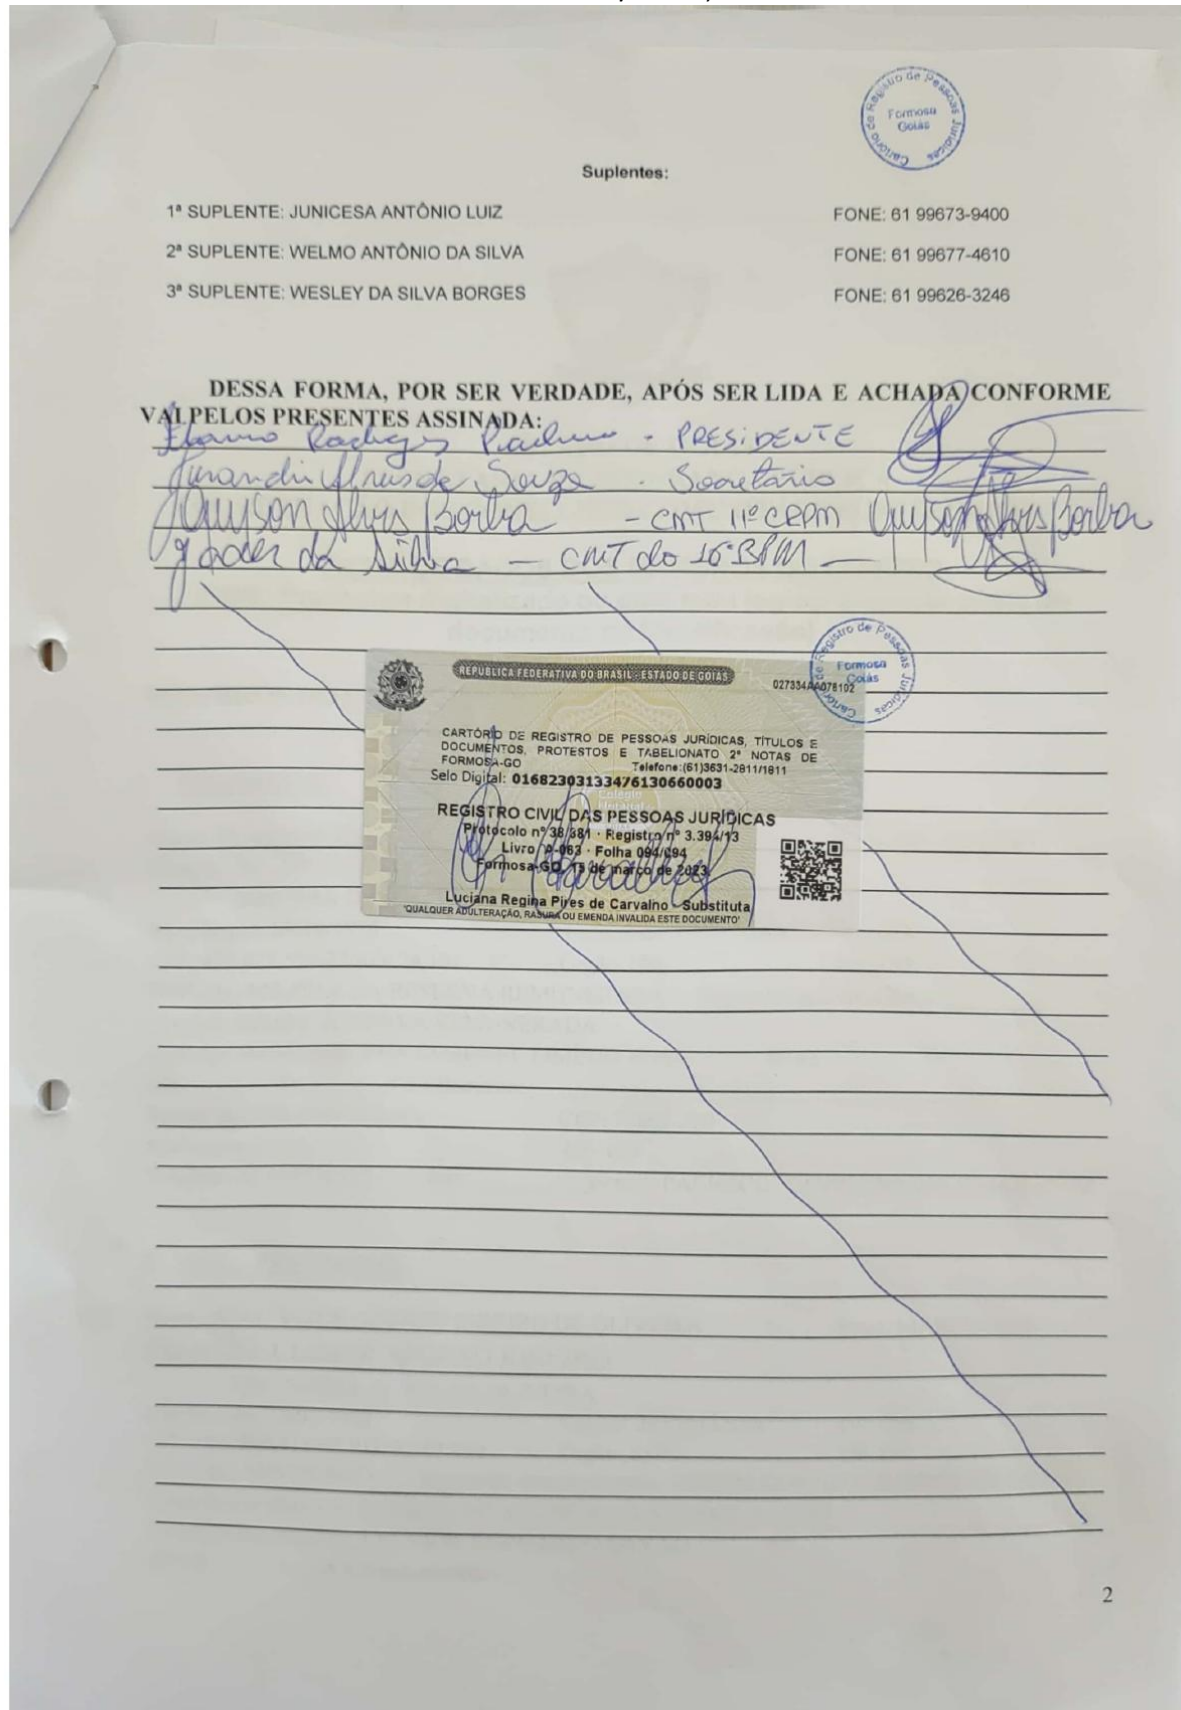 Cartório de Registro de Pessoas Jurídicas
Formosa
Goiás
Suplentes:
1ª SUPLENTE: JUNICESA ANTÔNIO LUIZ FONE: 61 99673-9400
2ª SUPLENTE: WELMO ANTÔNIO DA SILVA FONE: 61 99677-4610
3ª SUPLENTE: WESLEY DA SILVA BORGES FONE: 61 99626-3246
DESSA FORMA, POR SER VERDADE, APÓS SER LIDA E ACHADA CONFORME
VAI PELOS PRESENTES ASSINADA:
- PRESIDENTE
de Souza - Secretário
Alves Borba - CMT 11º CRPM Alves Borba
da Silva - CMT do 16º BPM -
Cartório de Registro de Pessoas Jurídicas
Formosa
Goiás
REPÚBLICA FEDERATIVA DO BRASIL - ESTADO DE GOIÁS
027334AA078102
CARTÓRIO DE REGISTRO DE PESSOAS JURÍDICAS, TÍTULOS E
DOCUMENTOS, PROTESTOS E TABELIONATO 2º NOTAS DE
FORMOSA-GO Telefone:(61)3631-2811/1811
Selo Digital: 01682303133476130660003
REGISTRO CIVIL DAS PESSOAS JURÍDICAS
Protocolo nº 38381 · Registro nº 3.394/13
Livro A-083 · Folha 094/094
Formosa-GO, 15 de março de 2023
Luciana Regina Pires de Carvalho - Substituta
"QUALQUER ADULTERAÇÃO, RASURA OU EMENDA INVALIDA ESTE DOCUMENTO"
2